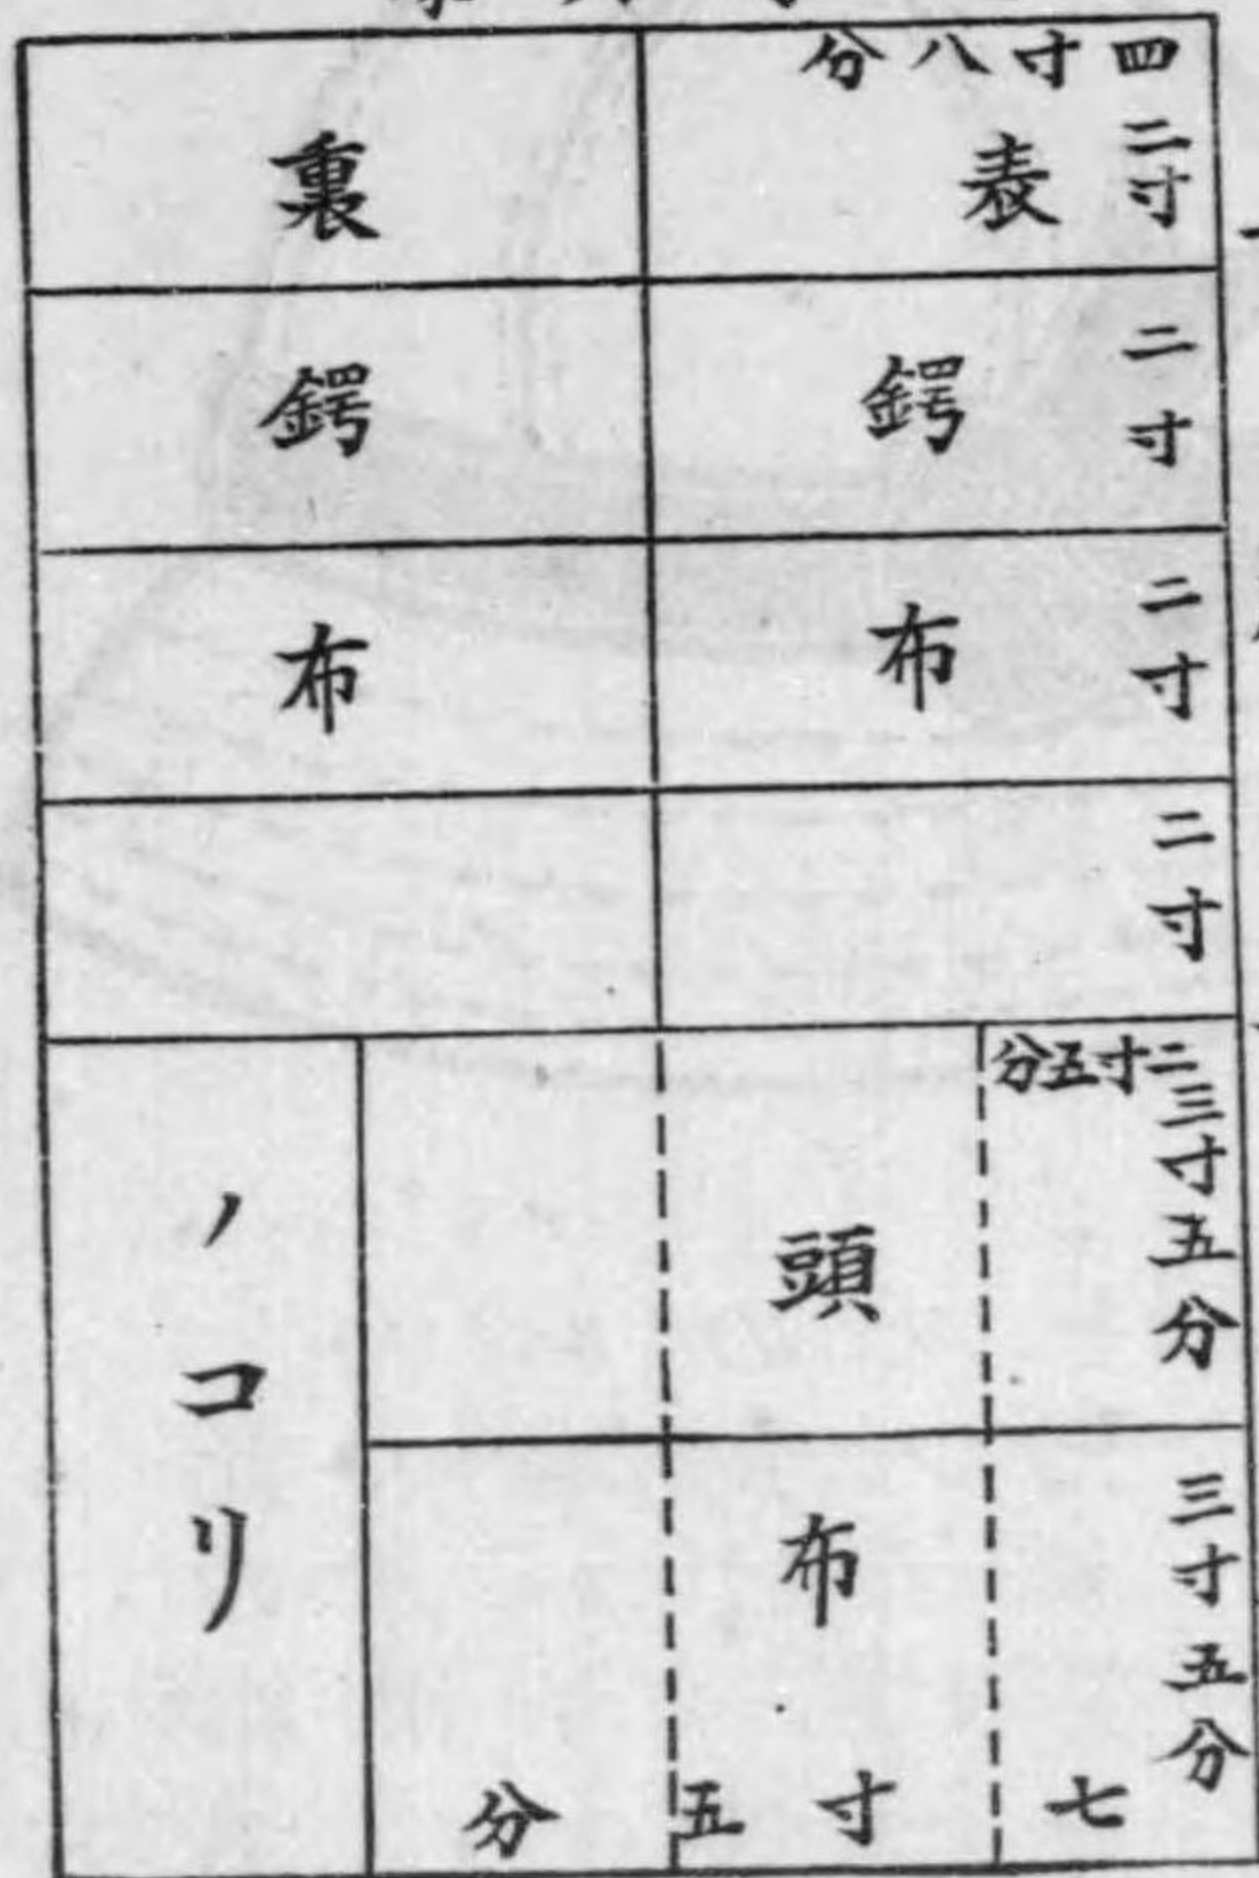 四寸八分
二寸
表
裏
二寸
鍔
鍔
二寸
布
布
二寸
二寸五分
三寸五分
頭
ノコリ
三寸五分
布
七寸五分